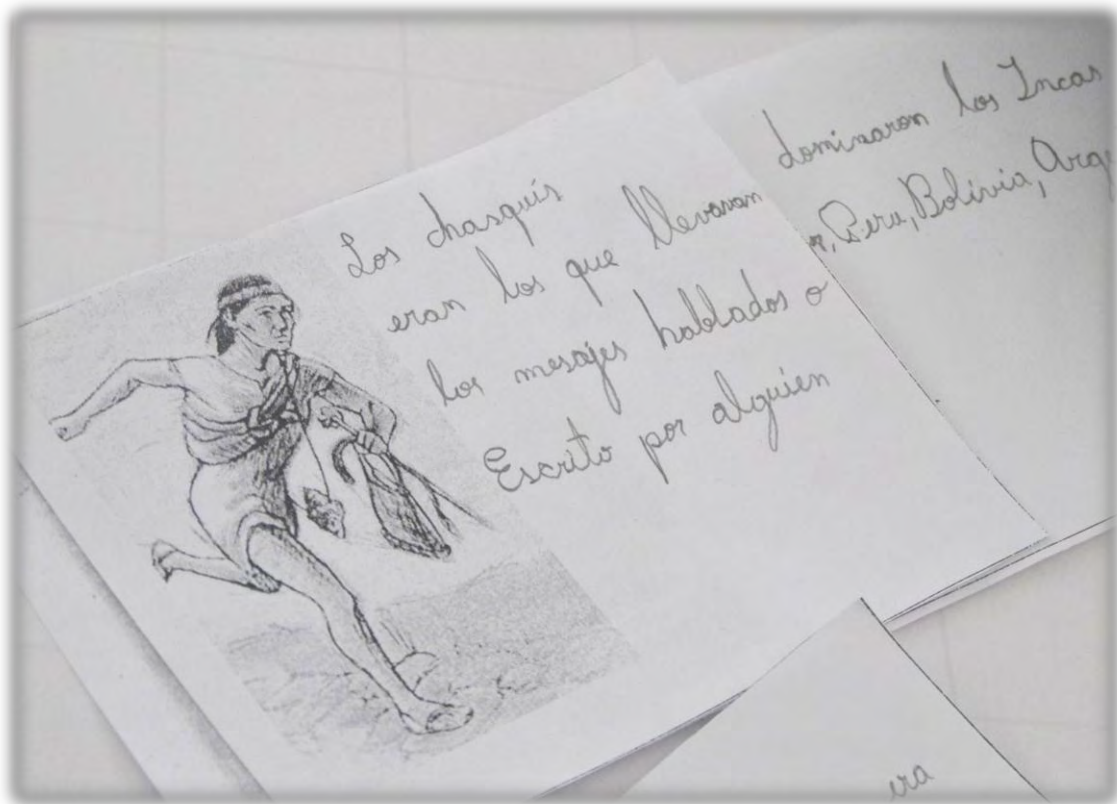 Los chasquis
eran los que llevavan
los mesajes hablados o
Escrito por alguien
dominaron los Incas
Peru, Bolivia,